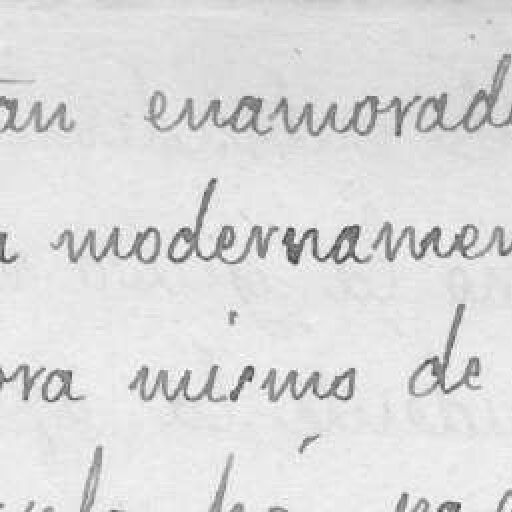 tan enamorad
a modernamen
ora mismo de